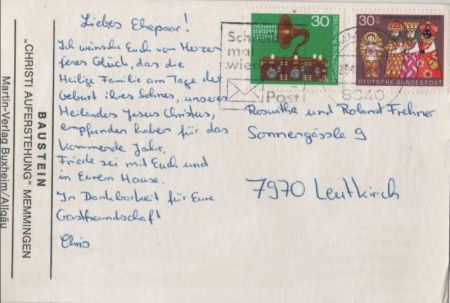 BAUSTEIN
„CHRISTI AUFERSTEHUNG" MEMMINGEN
Martin-Verlag Buxheim/Allgäu
Liebes Ehepaar!
Ich wünsche Euch von Herzen
jenes Glück, das die
Heilige Familie am Tage der
Geburt ihres Sohnes, unseres
Heilandes Jesus Christus,
empfunden haben für das
kommende Jahr.
Friede sei mit Euch und
in Eurem Hause.
In Dankbarkeit für Eure
Gastfreundschaft
Chris
30
30
DEUTSCHE BUNDESPOST
Schreib
mal
wieder
Post
8940
Roswitha und Roland Frehner
Sonnergässle 9
7970 Leutkirch